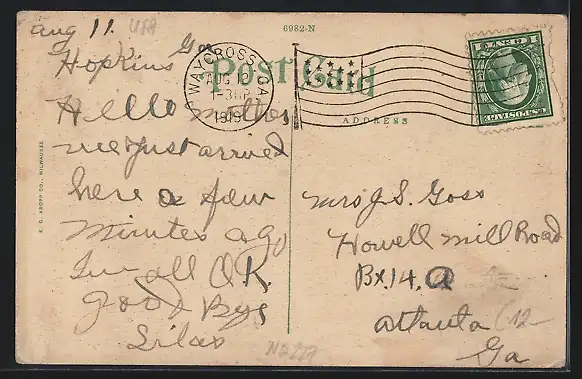 6982-N
aug 11. USA
Hopkins Ga
Post Card
WAYCROSS, GA.
AUG 12
1-30P
1919
U.S. POSTAGE
1 CENT 1
ADDRESS
Hello mother
we just arrived
here a few
minutes ago,
I'm all O.K.
good Bye
Silas
Mrs J. S. Goss
Howell mill Road
Bx 14, a
atlanta
Ga
E. C. KROPP CO., MILWAUKEE